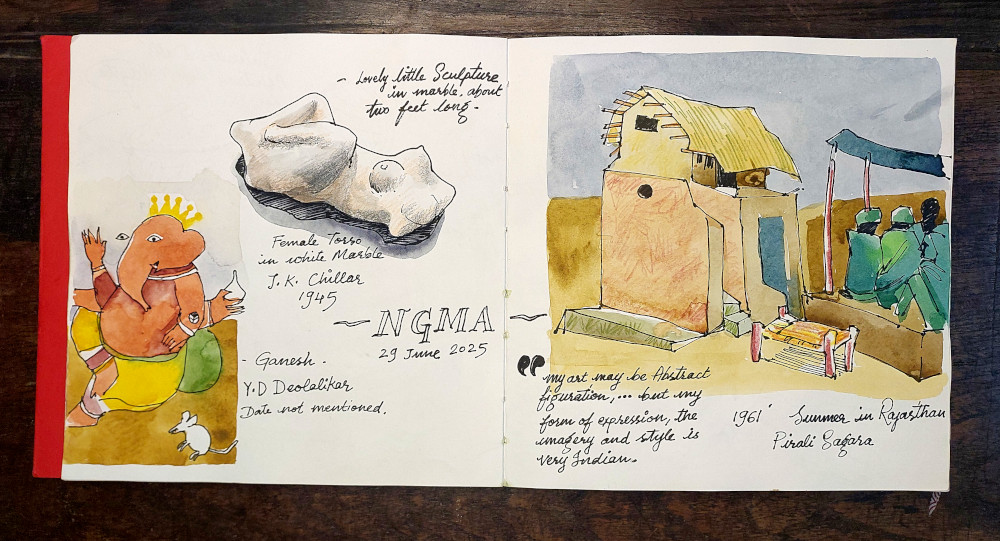 - Lovely little Sculpture
in marble, about
two feet long -
Female Torso
in white Marble
J. K. Chillar
1945
~ NGMA ~
29 June 2025
- Ganesh -
Y.D Deolalikar
Date not mentioned.
" my art may be Abstract
figuration,... but my
form of expression, the
imagery and style is
very Indian.
1961' Summer in Rajasthan
Pirali Sagara